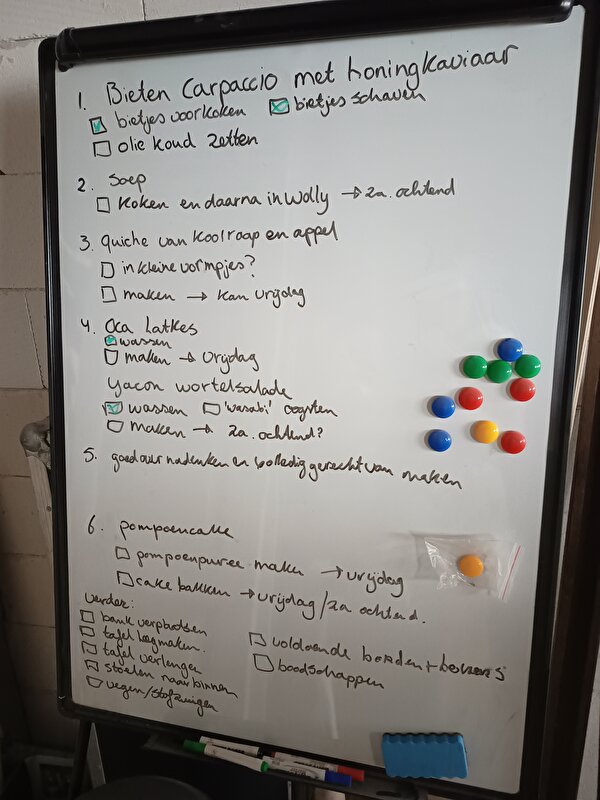 1. Bieten Carpaccio met honingkaviaar
☑ bietjes voorkoken ☒ bietjes schaven
☐ olie koud zetten
2. Soep
☐ koken en daarna in Wolly → za. ochtend
3. quiche van koolraap en appel
☐ in kleine vormpjes?
☐ maken → kan vrijdag
4. Oca Latkes
☑ wassen
☐ maken → vrijdag
Yacon wortelsalade
☑ wassen ☐ 'wasabi' oogsten
☐ maken → za. ochtend?
5. goed over nadenken en volledig gerecht van maken
6. pompoencake
☐ pompoenpuree maken → vrijdag
☐ cake bakken → vrijdag/za ochtend.
verder:
☐ bank verplaatsen
☐ tafel leegmaken.
☐ tafel verlengen
☐ stoelen naar binnen
☐ vegen/stofzuigen
☐ voldoende borden + bekers
☐ boodschappen